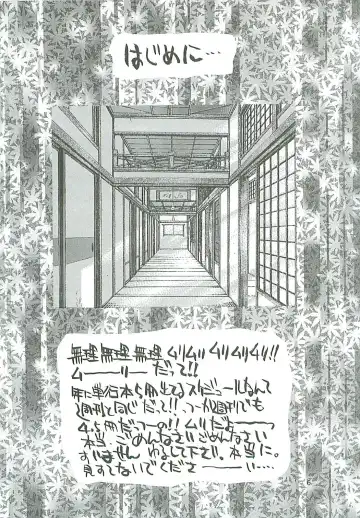 はじめに…
無理無理無理ムリムリムリムリムリ!!
ムーーリーーだって!!
年に単行本5冊出てるスケジュールなんて
週刊と同じだって!! つーか週刊でも
4.5冊だつーの!! ムリだよーーっ
本当ごめんなさいごめんなさい
すいませんゆるして下さい。本当に。
見すてないでくださーーーい…